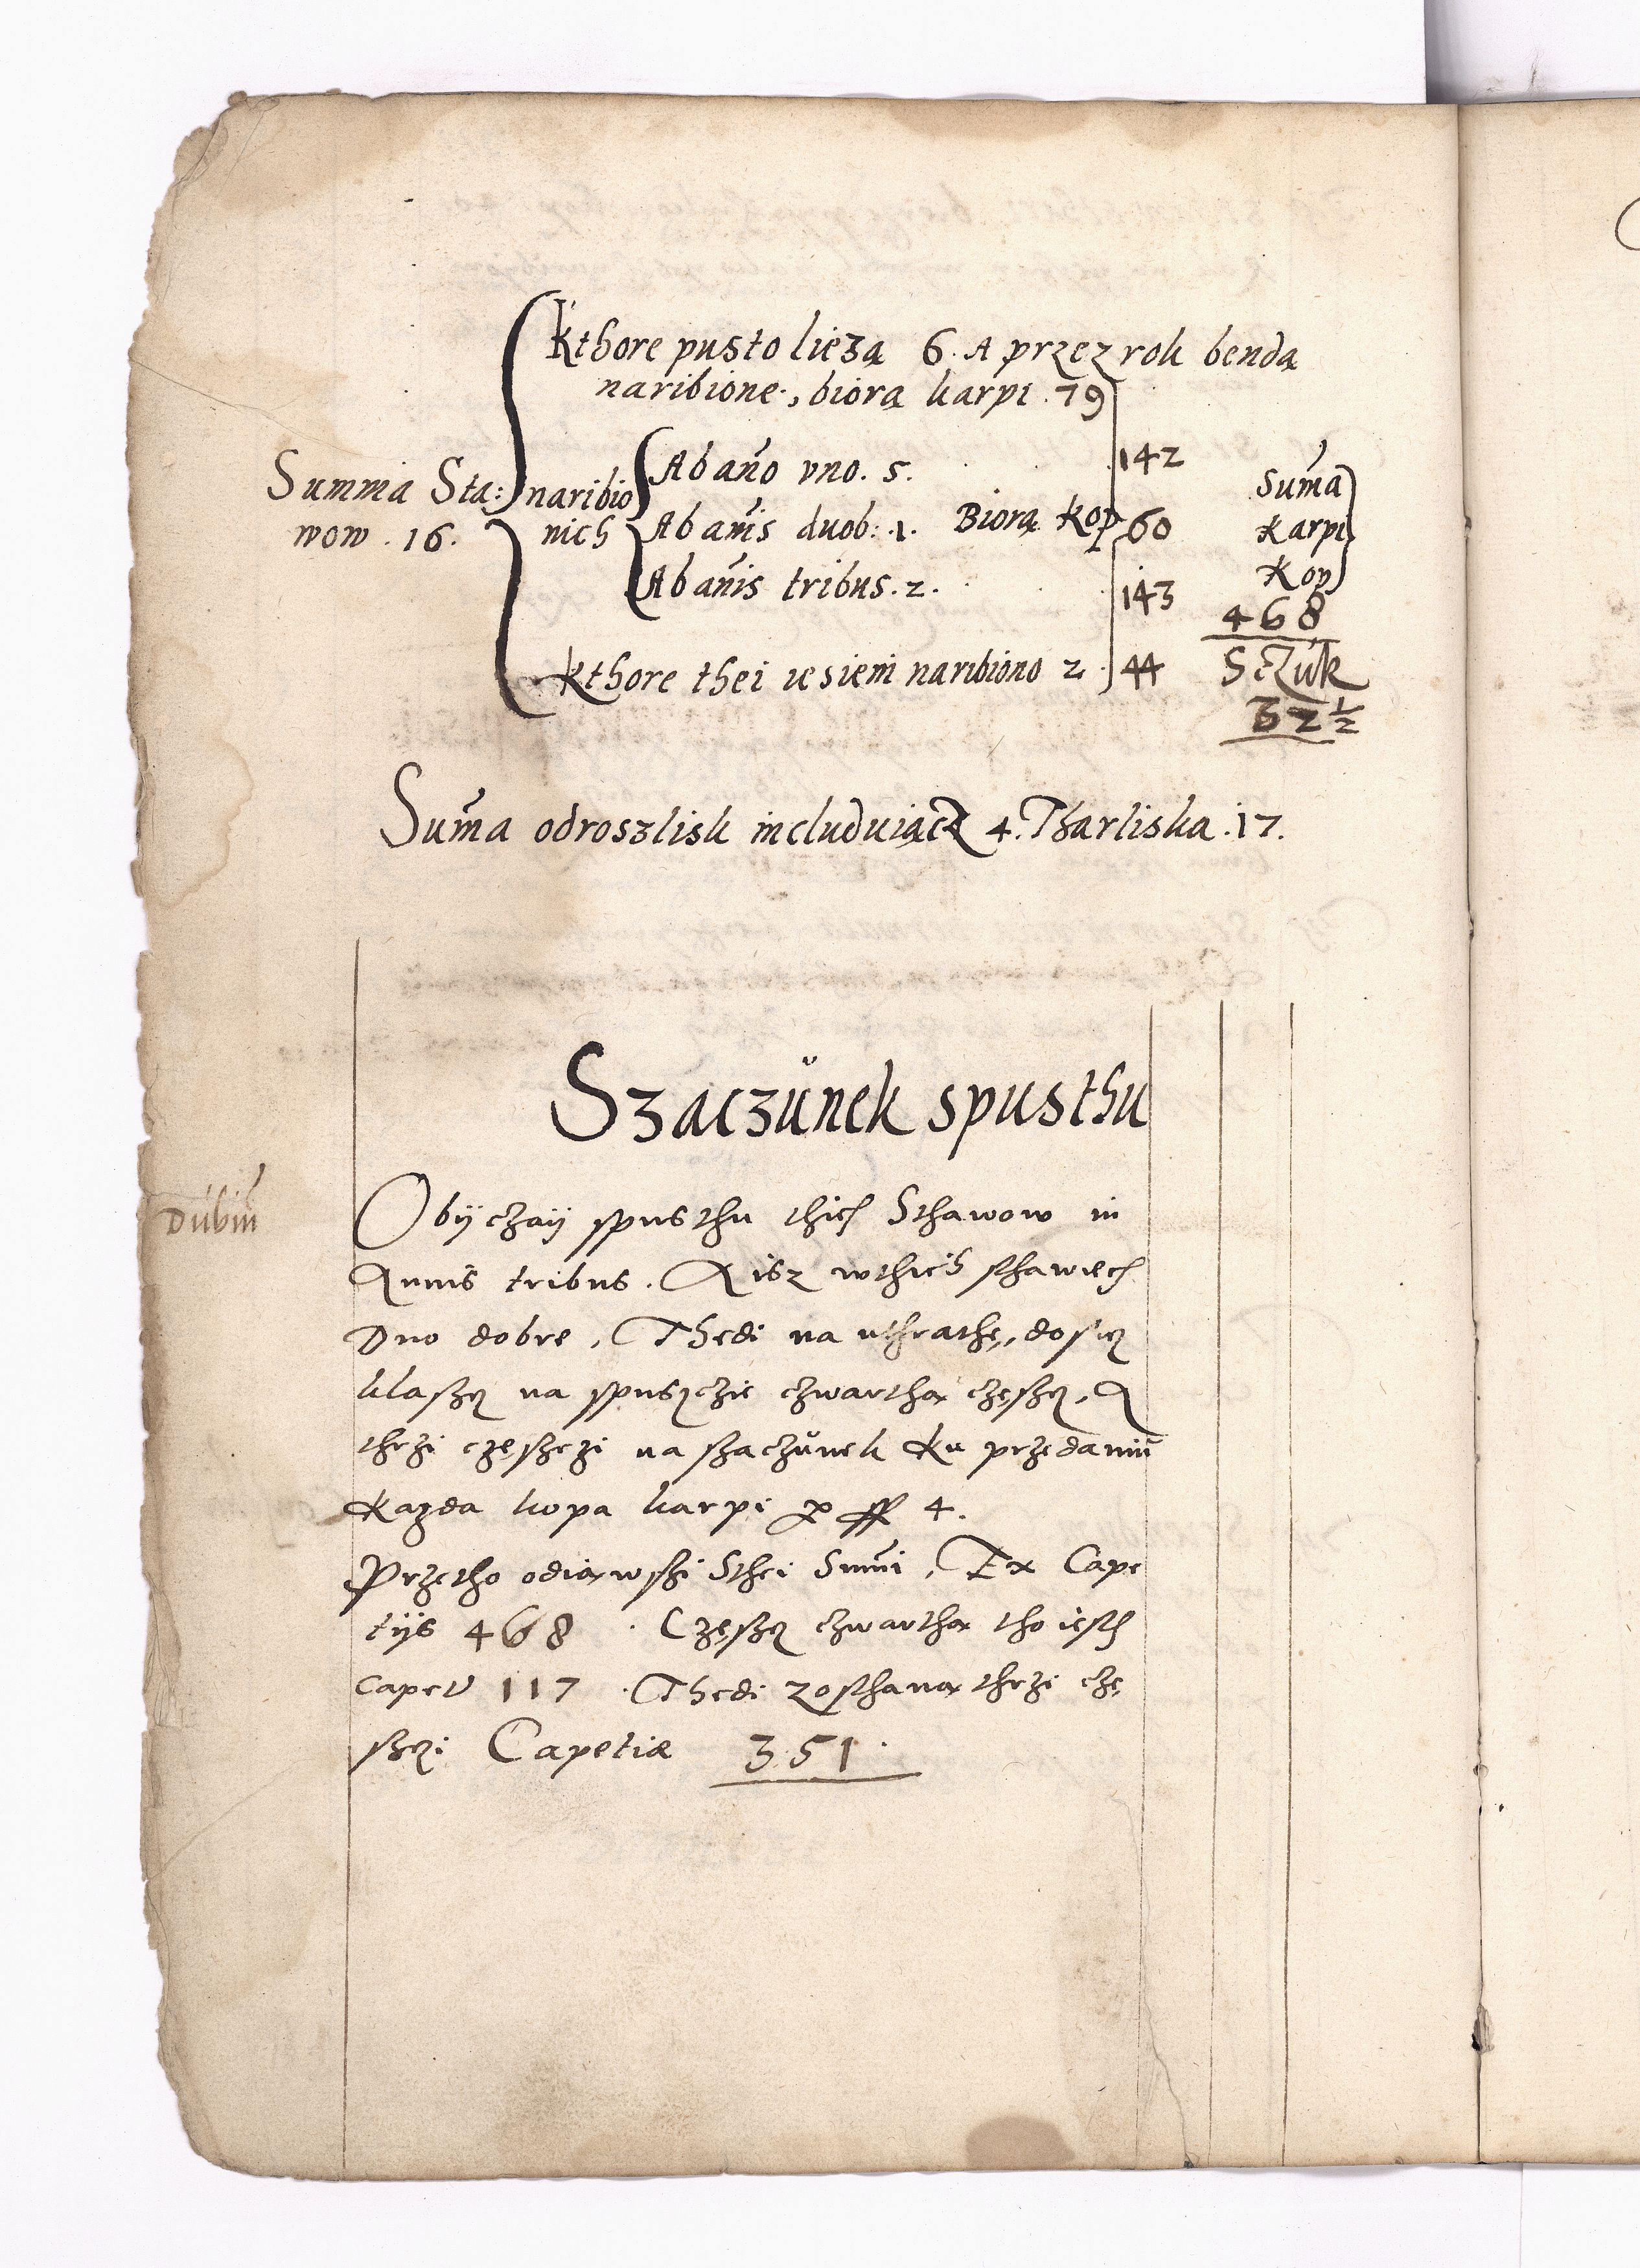 Kthore pusto lieżą 6. A przez rok benda
naribione, biorą karpi. 79
Summa Sta:
wow. 16.
naribio
nich
Ab año vno. 5.
Ab añis duob: 1. Biorą Kop
Ab añis tribus. 2.
142
60
143
Kthore thei iesieni naribiono 2. 44
Suma
Karpi
Kop
468
Sztuk
32 1/2
Suma odroszlisk includuiącz 4. Tharliska. 17.
Szaczünek spusthu
Dubiu
Obÿczaÿ spusthu thich Sthawow in
Annis tribus. Aisz wthich sthawiech
Dno dobre, Thedi na uthrathę, dosicz
kłaszcz na spusczie czwartha częszcz, A
thrzi częszczi na szaczünek Ku przedaniu
Kazda kopa karpi p ff 4.
Przetho odiawszi Sthei Sumi, Ex Cape
tijs 468. Częszcz czwartha tho iesth
Capet 117. Thedi zosthana thrzi czę
szczi Capetiæ 351.